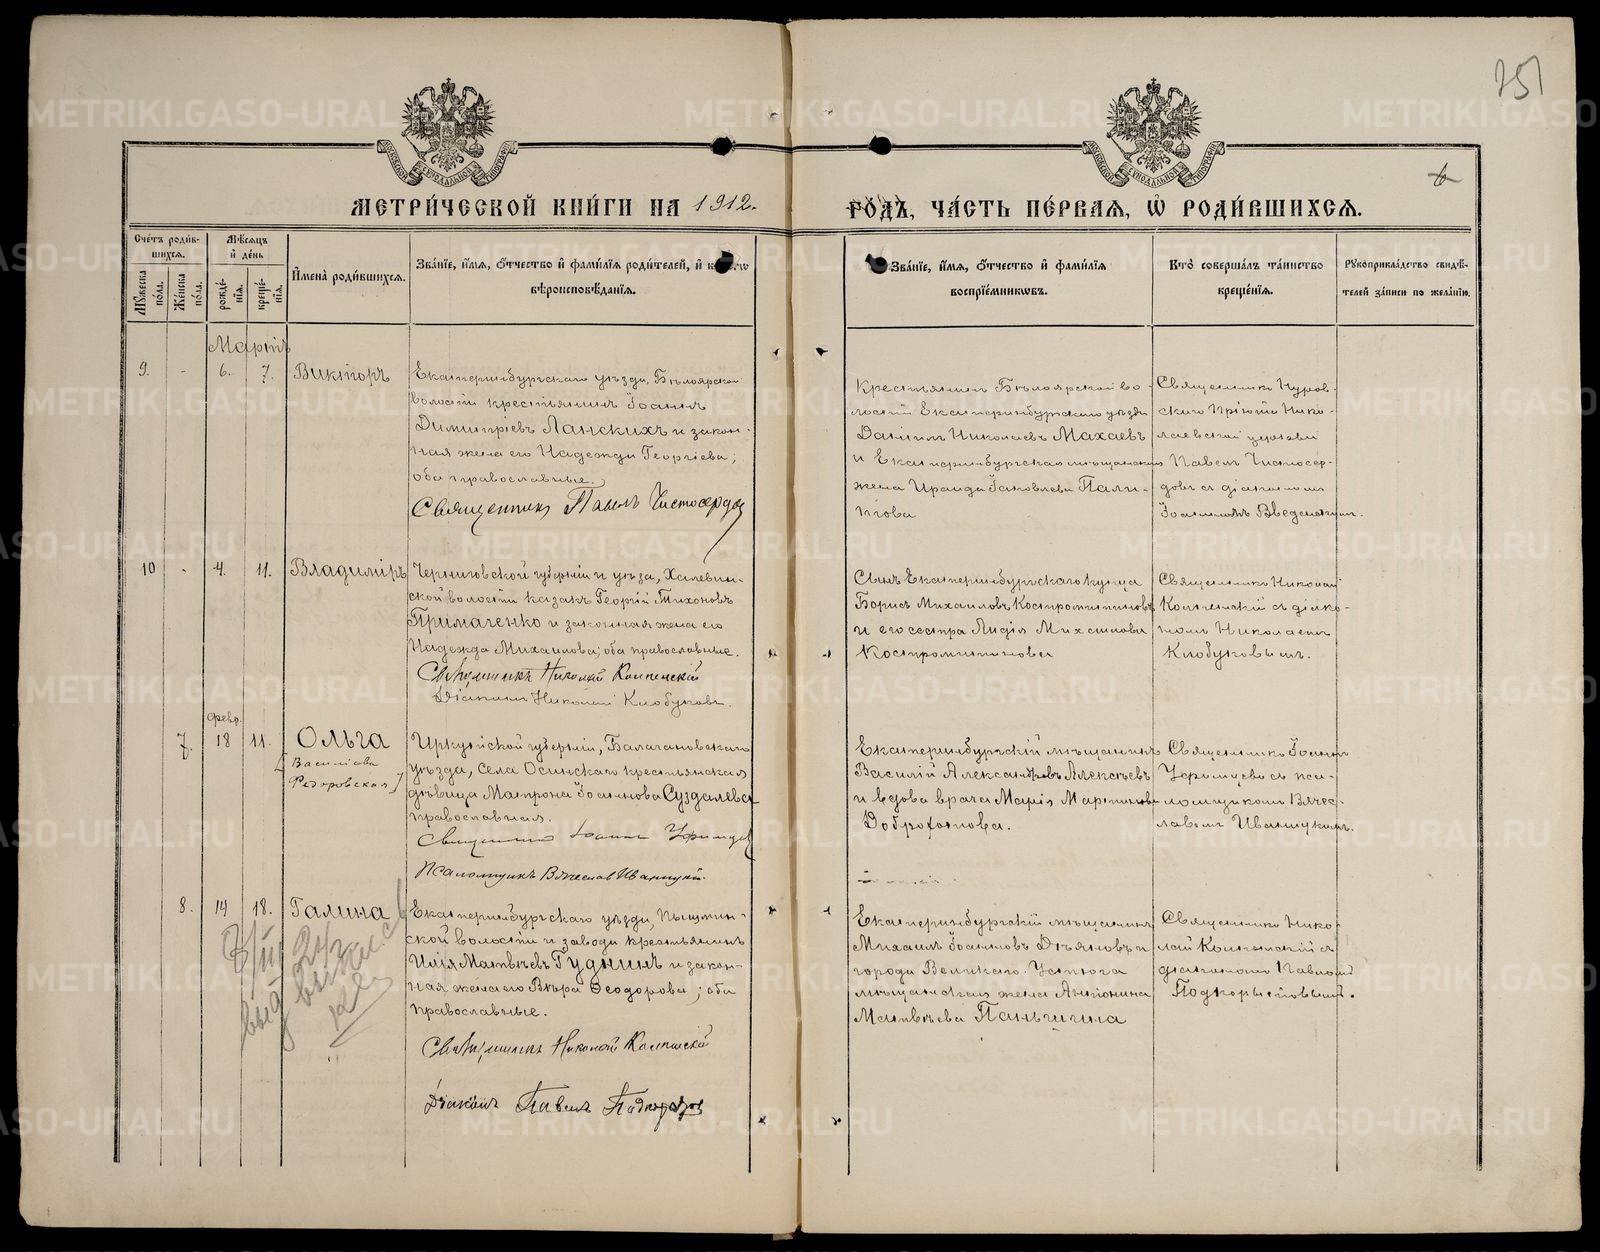 251
6
МОСКОВСКОЙ СѴНОДАЛЬНОЙ ТИПОГРАФІИ
МОСКОВСКОЙ СѴНОДАЛЬНОЙ ТИПОГРАФІИ
МЕТРИ́ЧЕСКОЙ КНИ́ГИ НА 1912. ГО́ДЪ, ЧА́СТЬ ПЕ́РВАЯ, Ѽ РОДИ́ВШИХСЯ.
Сче́тъ роди́вшихся.
Му́жеска по́ла.
Же́нска по́ла.
Мѣ́сяцъ и҆ де́нь
рожде́нія.
креще́нія.
И҆мена̀ роди́вшихся.
Зва́ніе, и҆́мя, ѻ҆́тчество и҆ фами́лія роди́телей, и҆
вѣроисповѣ́данія.
Зва́ніе, и҆́мя, ѻ҆́тчество и҆ фами́лія
воспріе́мниковъ.
Кто̀ соверша́лъ та́инство
креще́нія.
Рукоприкла́дство свидѣ́-
телей за́писи по жела́нію.
Мартъ
9. - 6. 7. Викторъ
Екатеринбургскаго уѣзда, Бѣлоярской
волости крестьянинъ Іоаннъ
Димитріевъ Ланскихъ и закон-
ная жена его Надежда Георгіева;
оба православные.
Священникъ Павелъ Чистосердовъ
Крестьянинъ Бѣлоярской во-
лости Екатеринбургскаго уѣзда
Даніилъ Николаевъ Махаевъ
и Екатеринбургская мѣщанская
жена Ираида Іаковлева Пали-
Священникъ Нуров-
скаго Пріюта Нико-
лаевской церкви
Павелъ Чистосер-
довъ съ діакономъ
Іоанномъ Введенскимъ.
10 - 4. 11. Владиміръ
Черниговской губерніи и уѣзда, Халевин-
ской волости казакъ Георгій Тихоновъ
Примаченко и законная жена его
Надежда Михаилова; оба православные.
Священникъ Николай Колпенскій
Діаконъ Николай Клобуковъ.
Сынъ Екатеринбургскаго купца
Борисъ Михаиловъ Костромитиновъ
и его сестра Лидія Михаилова
Костромитинова
Священникъ Николай
съ діако-
номъ Николаемъ
Клобуковымъ.
февр.
7. 18 11. Ольга
[Василіева
Федоровская]
Иркутской губерніи, Балаганскаго
уѣзда, села Осинскаго крестьянская
дѣвица Матрона Іоаннова Суздалева
православная.
Священникъ Іоаннъ
Псаломщикъ Вячеслав Иваницкій.
Екатеринбургскій мѣщанинъ
Василій Александровъ Алексѣевъ
и вдова врача Марія Мартинова
Доброхотова.
Священникъ Іоаннъ
съ пса-
ломщикомъ Вячес-
лавомъ Иваницкимъ.
8. 14 18. Галина
Екатеринбургскаго уѣзда, Пышмин-
ской волости и завода крестьянинъ
Илія Матвѣевъ Гуднинъ и закон-
ная жена его Вѣра Ѳеодорова; оба
православные.
Священникъ Николай
Діаконъ Павелъ Подкорытовъ
Екатеринбургскій мѣщанинъ
Михаилъ Іоанновъ Дѣяновъ и
города Великаго-Устюга
мѣщанская жена Антонина
Матвѣева Паньшина
Священникъ Нико-
лай съ
діакономъ Павломъ
Подкорытовымъ.
METRIKI.GASO-URAL.RU